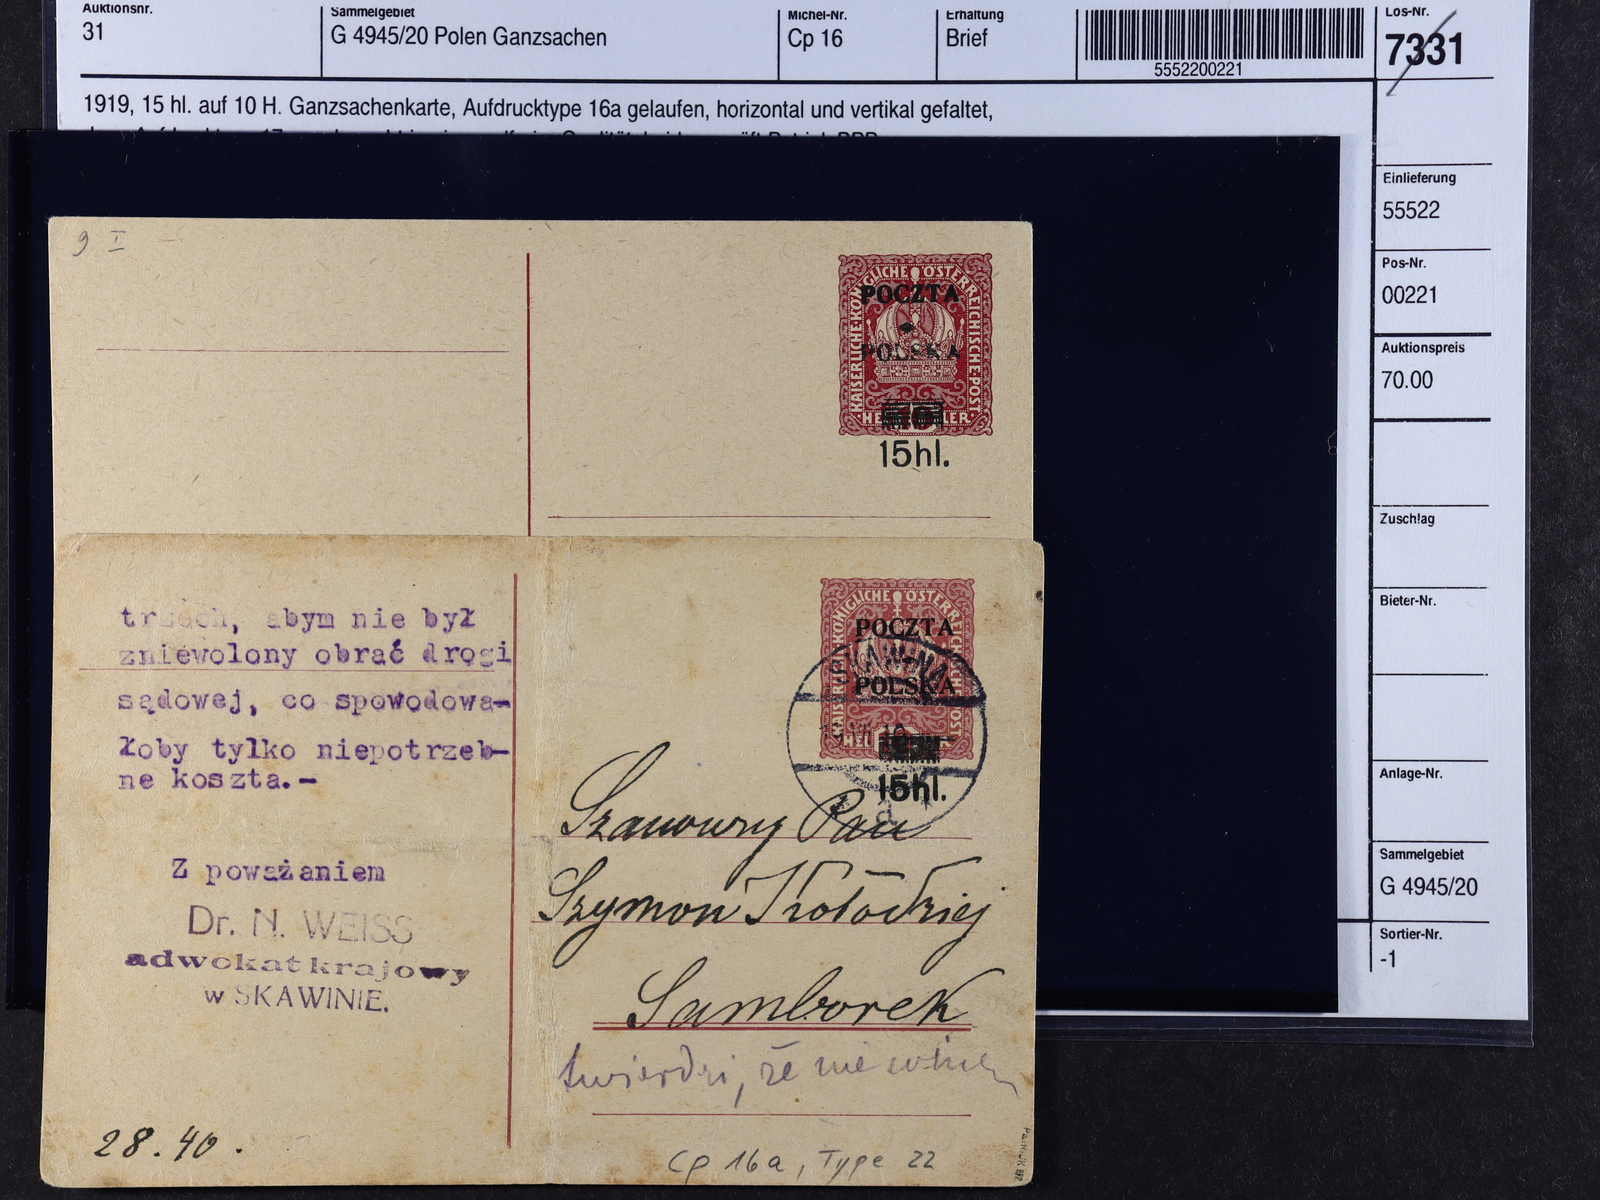 Auktionsnr.
31
Sammelgebiet
G 4945/20 Polen Ganzsachen
Michel-Nr.
Cp 16
Erhaltung
Brief
5552200221
Los-Nr.
7331
1919, 15 hl. auf 10 H. Ganzsachenkarte, Aufdrucktype 16a gelaufen, horizontal und vertikal gefaltet,
Einlieferung
55522
Pos-Nr.
00221
Auktionspreis
70.00
Zuschlag
Bieter-Nr.
Anlage-Nr.
Sammelgebiet
G 4945/20
Sortier-Nr.
-1
9 I
KAISERLICHE·KÖNIGLICHE ÖSTERREICHISCHE·POST·
POCZTA
POLSKA
15hl.
trzech, abym nie był
zniewolony obrać drogi
sądowej, co spowodowa-
łoby tylko niepotrzeb-
ne koszta.-
Z poważaniem
Dr. N. WEISS
adwokat krajowy
w SKAWINIE.
28.40.
KÖNIGLICHE ÖSTERREICHISCHE
POCZTA
POLSKA
15hl.
Szanowny Pan
Szymon Kołodziej
Samborek
twierdzi, że nie
Cp 16a, Type 22